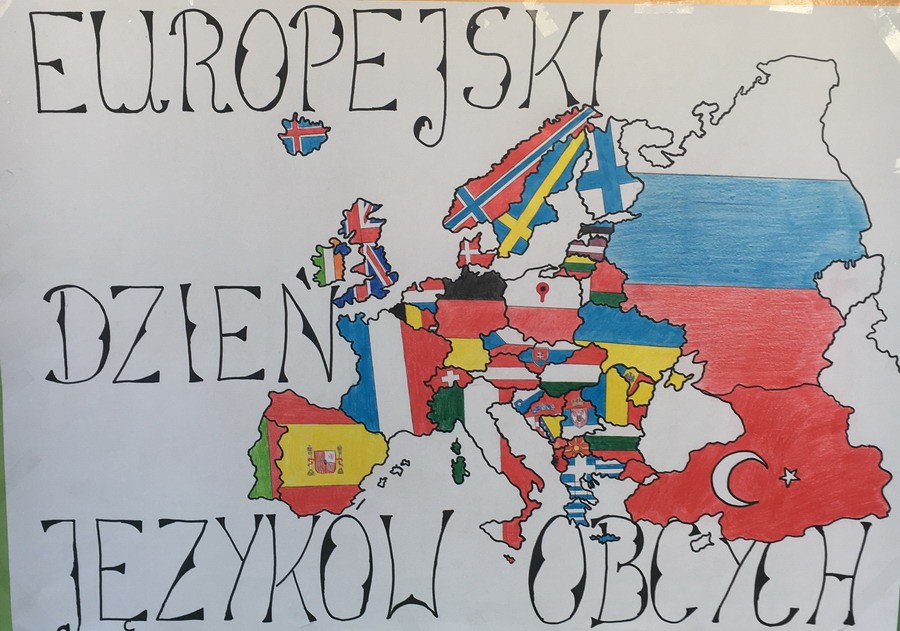 EUROPEJSKI
DZIEŃ
JĘZYKOW OBCYCH